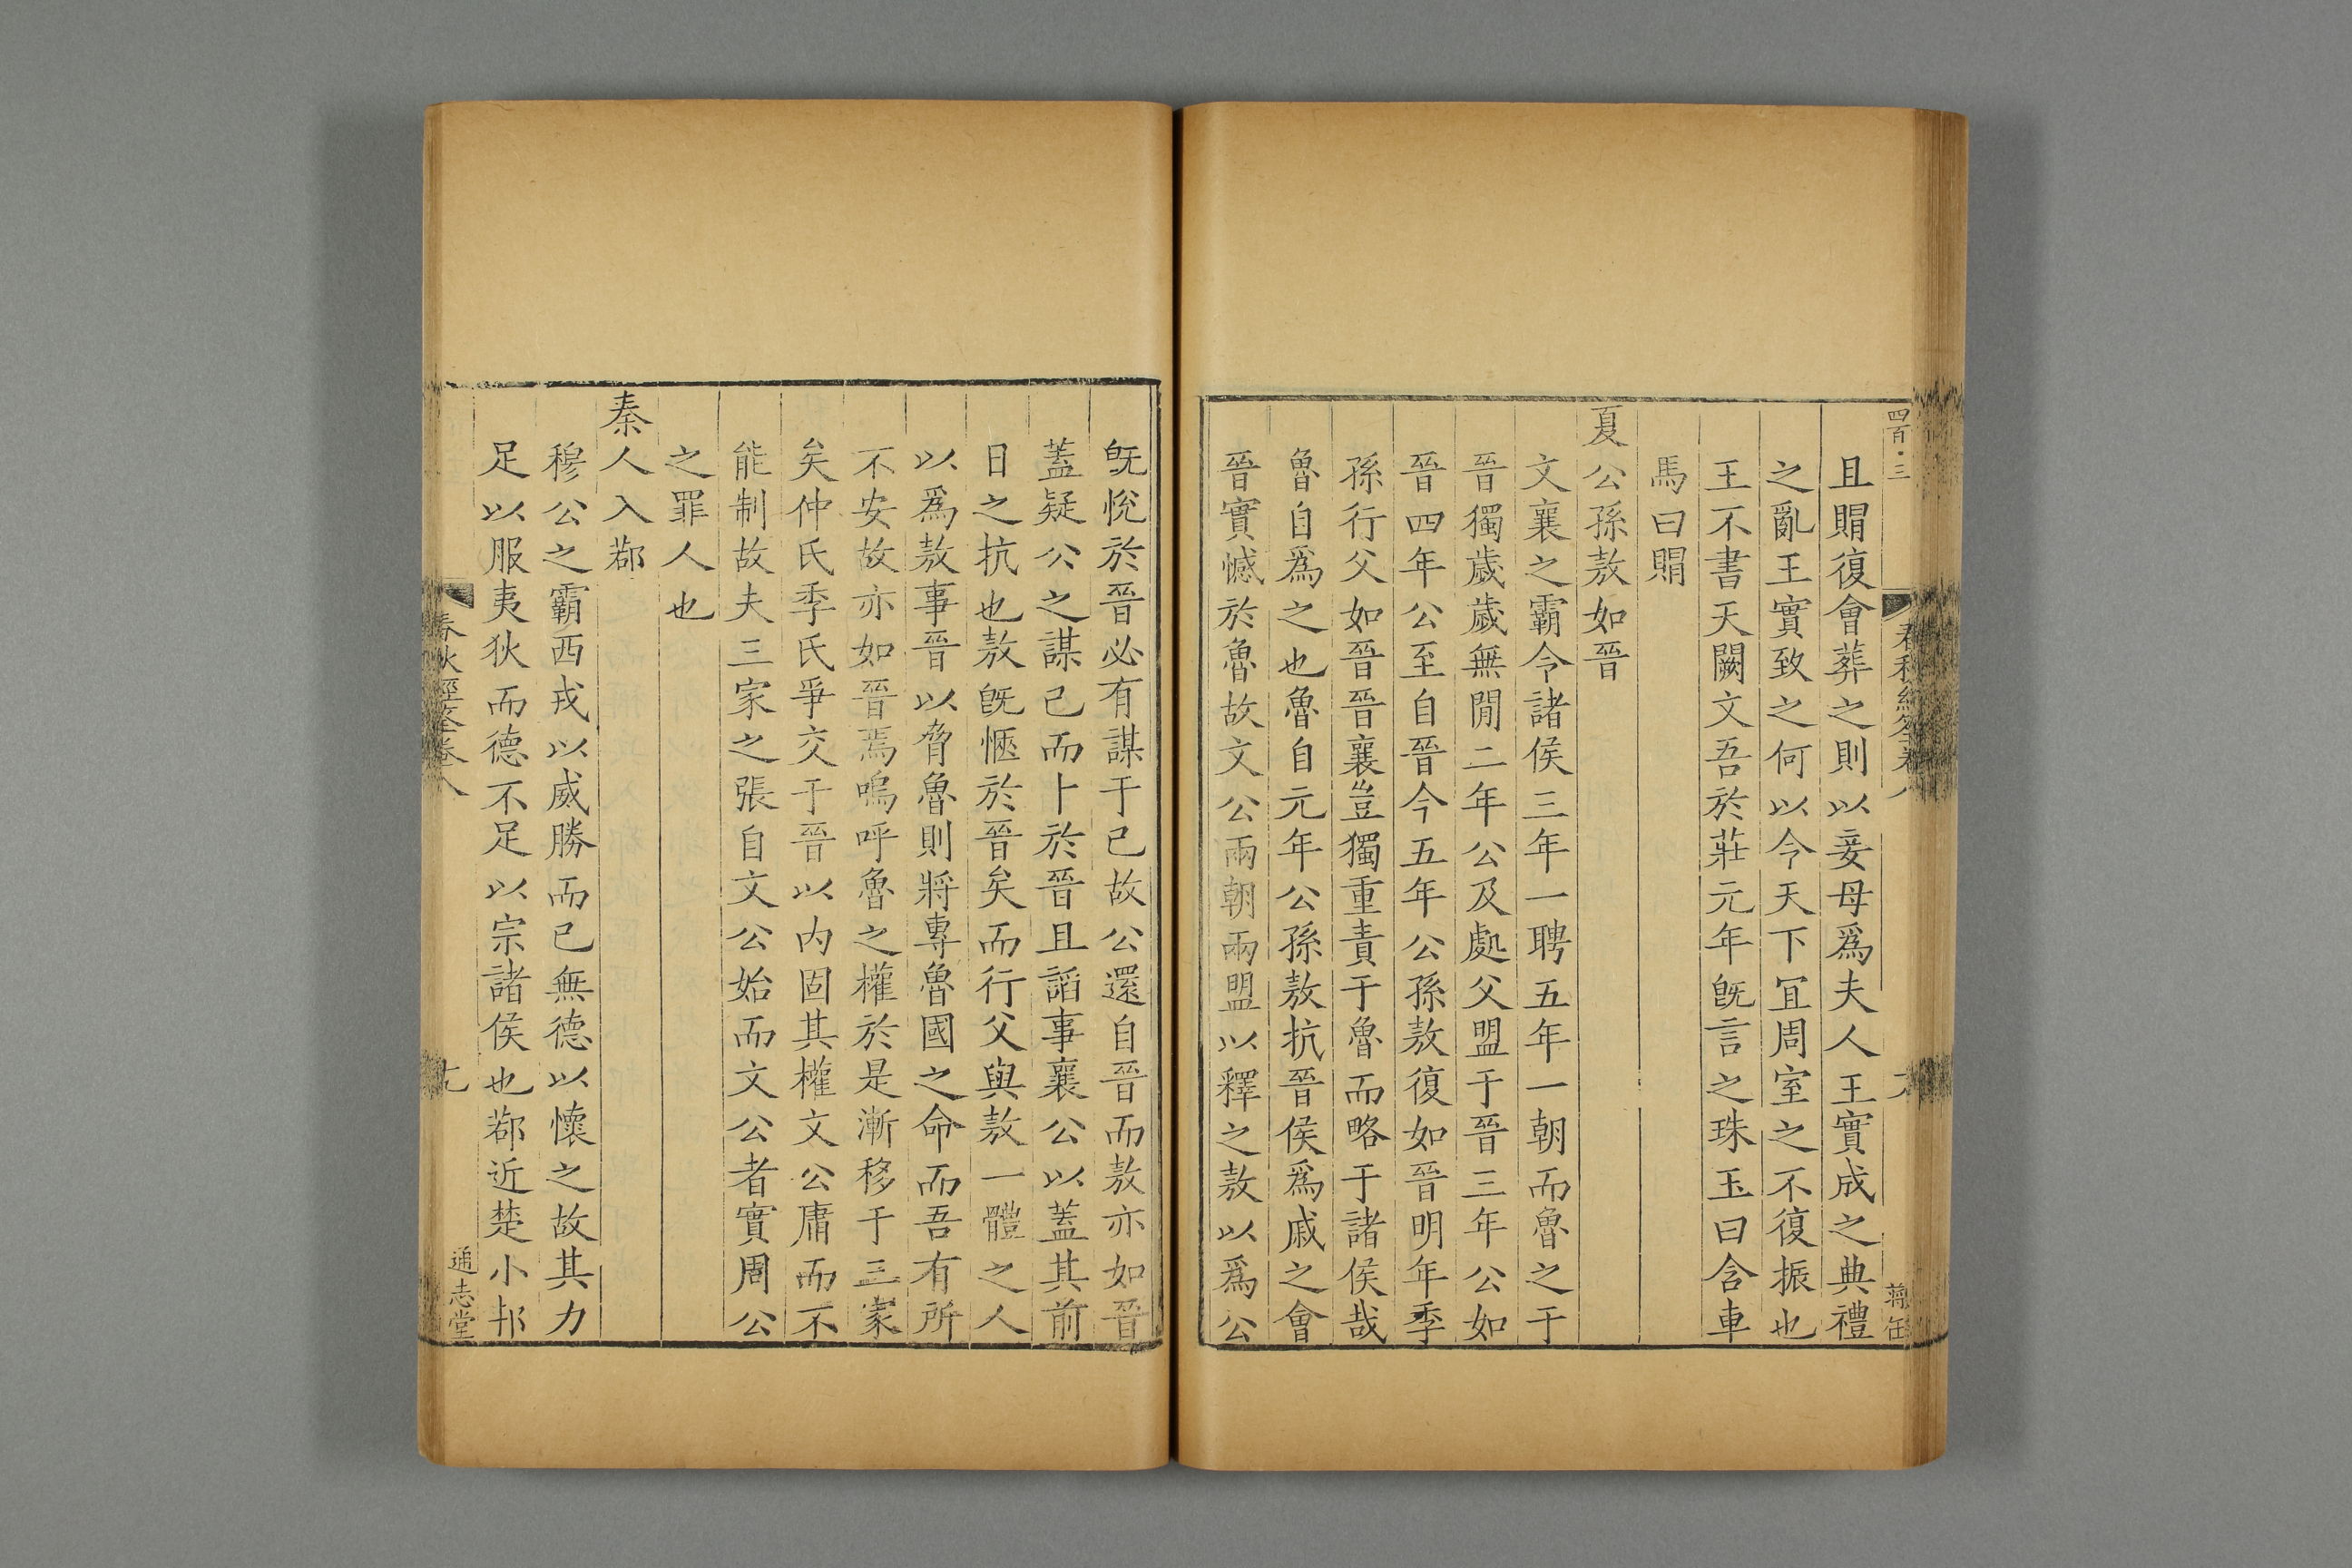 且賵復會葬之則以妾母爲夫人王實成之典禮
之亂王實致之何以令天下冝周室之不復振也
王不書天闕文吾於莊元年旣言之珠玉曰含車
馬曰賵
夏公孫敖如晉
文襄之霸令諸侯三年一聘五年一朝而魯之于
晉獨歲歲無閒二年公及處父盟于晉三年公如
晉四年公至自晉今五年公孫敖復如晉明年季
孫行父如晉晉襄豈獨重責于魯而略于諸侯哉
魯自爲之也魯自元年公孫敖抗晉侯爲戚之會
晉實憾於魯故文公兩朝兩盟以釋之敖以爲公
旣悅於晉必有謀于已故公還自晉而敖亦如晉
蓋疑公之謀己而卜於晉且謟事襄公以蓋其前
日之抗也敖旣愜於晉矣而行父與敖一體之人
以爲敖事晉以脅魯則將專魯國之命而吾有所
不安故亦如晉焉嗚呼魯之權於是漸移于三家
矣仲氏季氏爭交于晉以内固其權文公庸而不
能制故夫三家之張自文公始而文公者實周公
之罪人也
秦人入鄀
穆公之霸西戎以威勝而已無德以懷之故其力
足以服夷狄而德不足以宗諸侯也鄀近楚小邦
春秋經筌卷八
通志堂